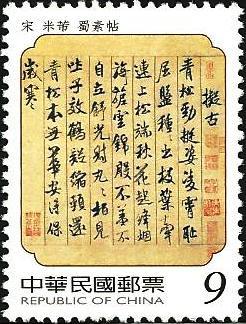 宋 米芾 蜀素帖
擬古
青松勁挺姿凌霄恥
屈盤種種出枝葉牽
連上松端秋花起絳烟
旖旎雲錦殷不羞不
自立舒光射丸丸柏見
吐子效鶴疑縮頸還
青松本無華安得保
歲寒
中華民國郵票
REPUBLIC OF CHINA
9